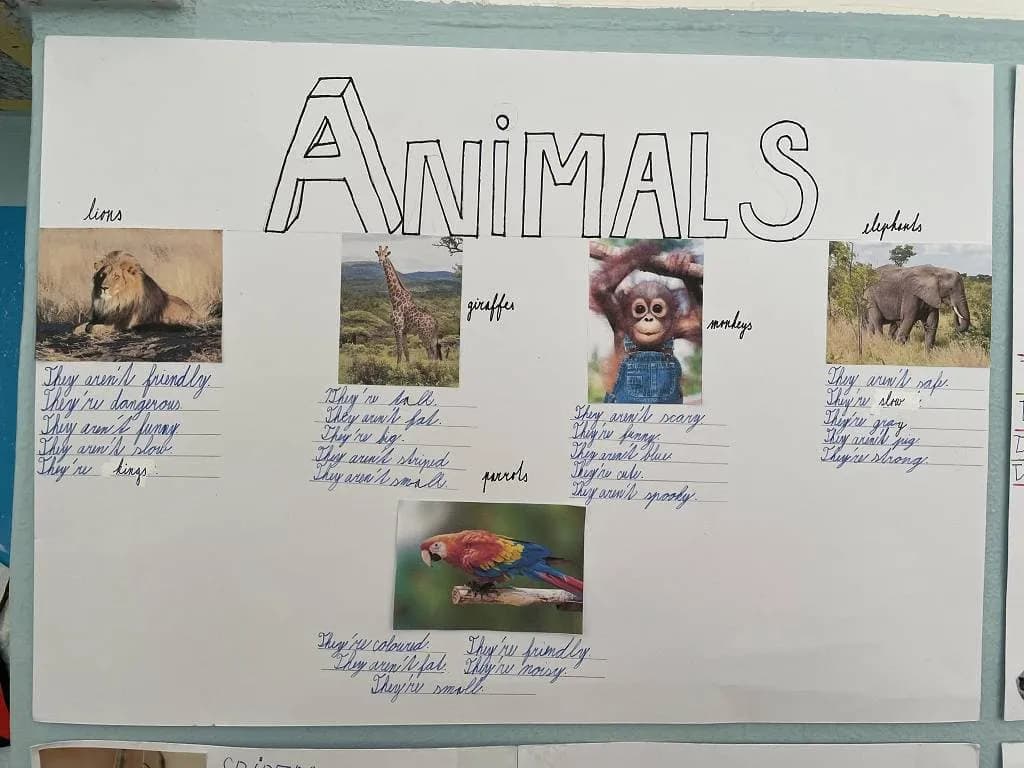 ANiMALS
lions
They aren't friendly.
They're dangerous.
They aren't funny.
They aren't slow.
They're kings.
giraffes
They're tall.
They aren't fat.
They're big.
They aren't striped
They aren't small.
monkeys
They aren't scary.
They're funny.
They aren't blue
They're cute.
They aren't spooky.
elephants
They aren't safe.
They're slow.
They're gray
They aren't
They're strong.
parrots
They're coloured. They're friendly.
They aren't fat. They're noisy.
They're small.